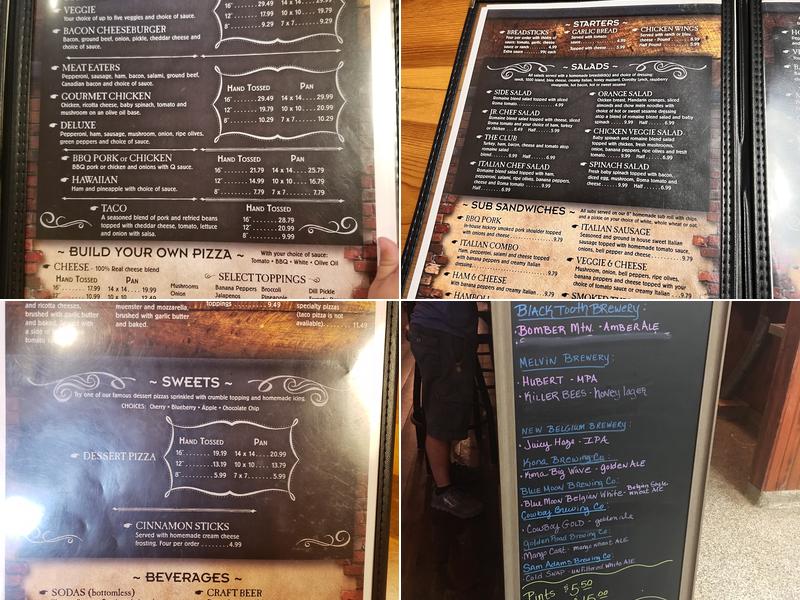 VEGGIE
Your choice of up to five veggies and choice of sauce.
BACON CHEESEBURGER
Bacon, ground beef, onion, pickle, cheddar cheese and
choice of sauce.
16" 29.49 14 x 14
12" 17.99 10 x 10
8" 9.29 7 x 7 9.29
MEAT EATERS
Pepperoni, sausage, ham, bacon, salami, ground beef,
Canadian bacon and choice of sauce.
GOURMET CHICKEN
Chicken, ricotta cheese, baby spinach, tomato and
mushroom on an olive oil base.
DELUXE
Pepperoni, ham, sausage, mushroom, onion, ripe olives,
green peppers and choice of sauce.
HAND TOSSED PAN
16" 29.49 14 x 14 29.99
12" 19.79 10 x 10 20.99
8" 10.29 7 x 7 10.29
BBQ PORK OR CHICKEN
BBQ pork or chicken and onions with Q sauce.
HAWAIIAN
Ham and pineapple with choice of sauce.
HAND TOSSED PAN
16" 21.79 14 x 14 25.79
12" 14.99 10 x 10 16.79
8" 7.79 7 x 7 7.79
TACO
A seasoned blend of pork and refried beans
topped with cheddar cheese, tomato, lettuce
and onion with salsa.
HAND TOSSED
16" 28.79
12" 20.99
8" 9.99
~ BUILD YOUR OWN PIZZA ~
With your choice of sauce:
Tomato • BBQ • White • Olive Oil
CHEESE - 100% Real cheese blend
HAND TOSSED PAN
SELECT TOPPINGS
Mushrooms
Onion
Banana Peppers
Jalapenos
Broccoli
Pineapple
Dill Pickle
~ STARTERS ~
BREADSTICKS
Four per order with choice of
sauce; tomato, garlic, cheese
sauce or ranch 4.99
GARLIC BREAD
Served with tomato
sauce 4.99
Topped with cheese 5.99
CHICKEN WINGS
Served with ranch or bleu
cheese
Half Pound 5.99
~ SALADS ~
All salads served with a homemade breadstick and choice of dressing:
ranch, 1000 island, bleu cheese, creamy Italian, honey mustard, Dorothy Lynch, raspberry
vinaigrette, hot bacon, hot or sweet sesame
SIDE SALAD
Romaine blend salad topped with sliced
Roma tomato 4.99
JR. CHEF SALAD
Romaine blend salad topped with cheese, sliced
Roma tomato and your choice of ham, turkey
or chicken 8.49 Half 5.99
THE CLUB
Turkey, ham, bacon, cheese and tomato atop
romaine salad
blend 9.99 Half 6.99
ITALIAN CHEF SALAD
Romaine blend salad topped with ham,
pepperoni, salami, ripe olives, banana peppers,
cheese and Roma tomato 9.99
Half 6.99
ORANGE SALAD
Chicken breast, Mandarin oranges, sliced
almonds and chow mein noodles
atop a blend of romaine blend salad and baby
spinach 9.99 Half 6.99
CHICKEN VEGGIE SALAD
Baby spinach and romaine blend salad
topped with chicken, fresh mushrooms,
onion, banana peppers, ripe olives and fresh
tomato 9.99 Half 6.99
SPINACH SALAD
Fresh baby spinach topped with bacon,
diced egg, mushroom, Roma tomato and
cheese 9.99 Half 6.99
~ SUB SANDWICHES ~
All subs served on our 8" homemade sub roll with chips
and a pickle on your choice of white, whole wheat or
BBQ PORK
In-house hickory smoked pork shoulder topped
with onions and cheese 9.79
ITALIAN COMBO
Ham, pepperoni, salami and cheese topped
with banana peppers and creamy Italian
dressing 9.79
HAM & CHEESE
ITALIAN SAUSAGE
Seasoned and ground in house sweet Italian
sausage topped with homemade tomato sauce,
onions, bell pepper and cheese 9.79
VEGGIE & CHEESE
Mushroom, onion, bell peppers, ripe olives,
banana peppers and cheese with your choice
of tomato sauce or creamy Italian 9.79
and ricotta cheeses,
brushed with garlic butter
and baked. Served with
a side of
tomato
muenster and mozzarella,
brushed with garlic butter
and baked.
specialty pizzas
(taco pizza is not
available) 11.49
~ SWEETS ~
Try one of our famous dessert pizzas sprinkled with crumble topping and homemade icing.
CHOICES: Cherry • Blueberry • Apple • Chocolate Chip
DESSERT PIZZA
HAND TOSSED PAN
16" 19.19 14 x 14 20.99
12" 13.19 10 x 10 13.79
8" 5.99 7 x 7 5.99
CINNAMON STICKS
Served with homemade cream cheese
frosting. Four per order 4.99
~ BEVERAGES ~
SODAS (bottomless)
CRAFT BEER
Black Tooth Brewery:
• Bomber Mtn. - Amber Ale
Melvin Brewery:
• Hubert - MPA
• Killer Bees - honey lager
New Belgium Brewery:
• Juicy Haze - IPA
Kona Brewing Co:
• Kona Big Wave - golden Ale
Blue Moon Brewing Co:
• Blue Moon Belgian White - Belgian Style wheat Ale
Cowboy Brewing Co:
• Cowboy Gold - golden ale
Golden Road Brewing Co:
• Mango Cart - mango wheat Ale
Sam Adams Brewing Co:
• Cold Snap - unfiltered White Ale
Pints $5.50